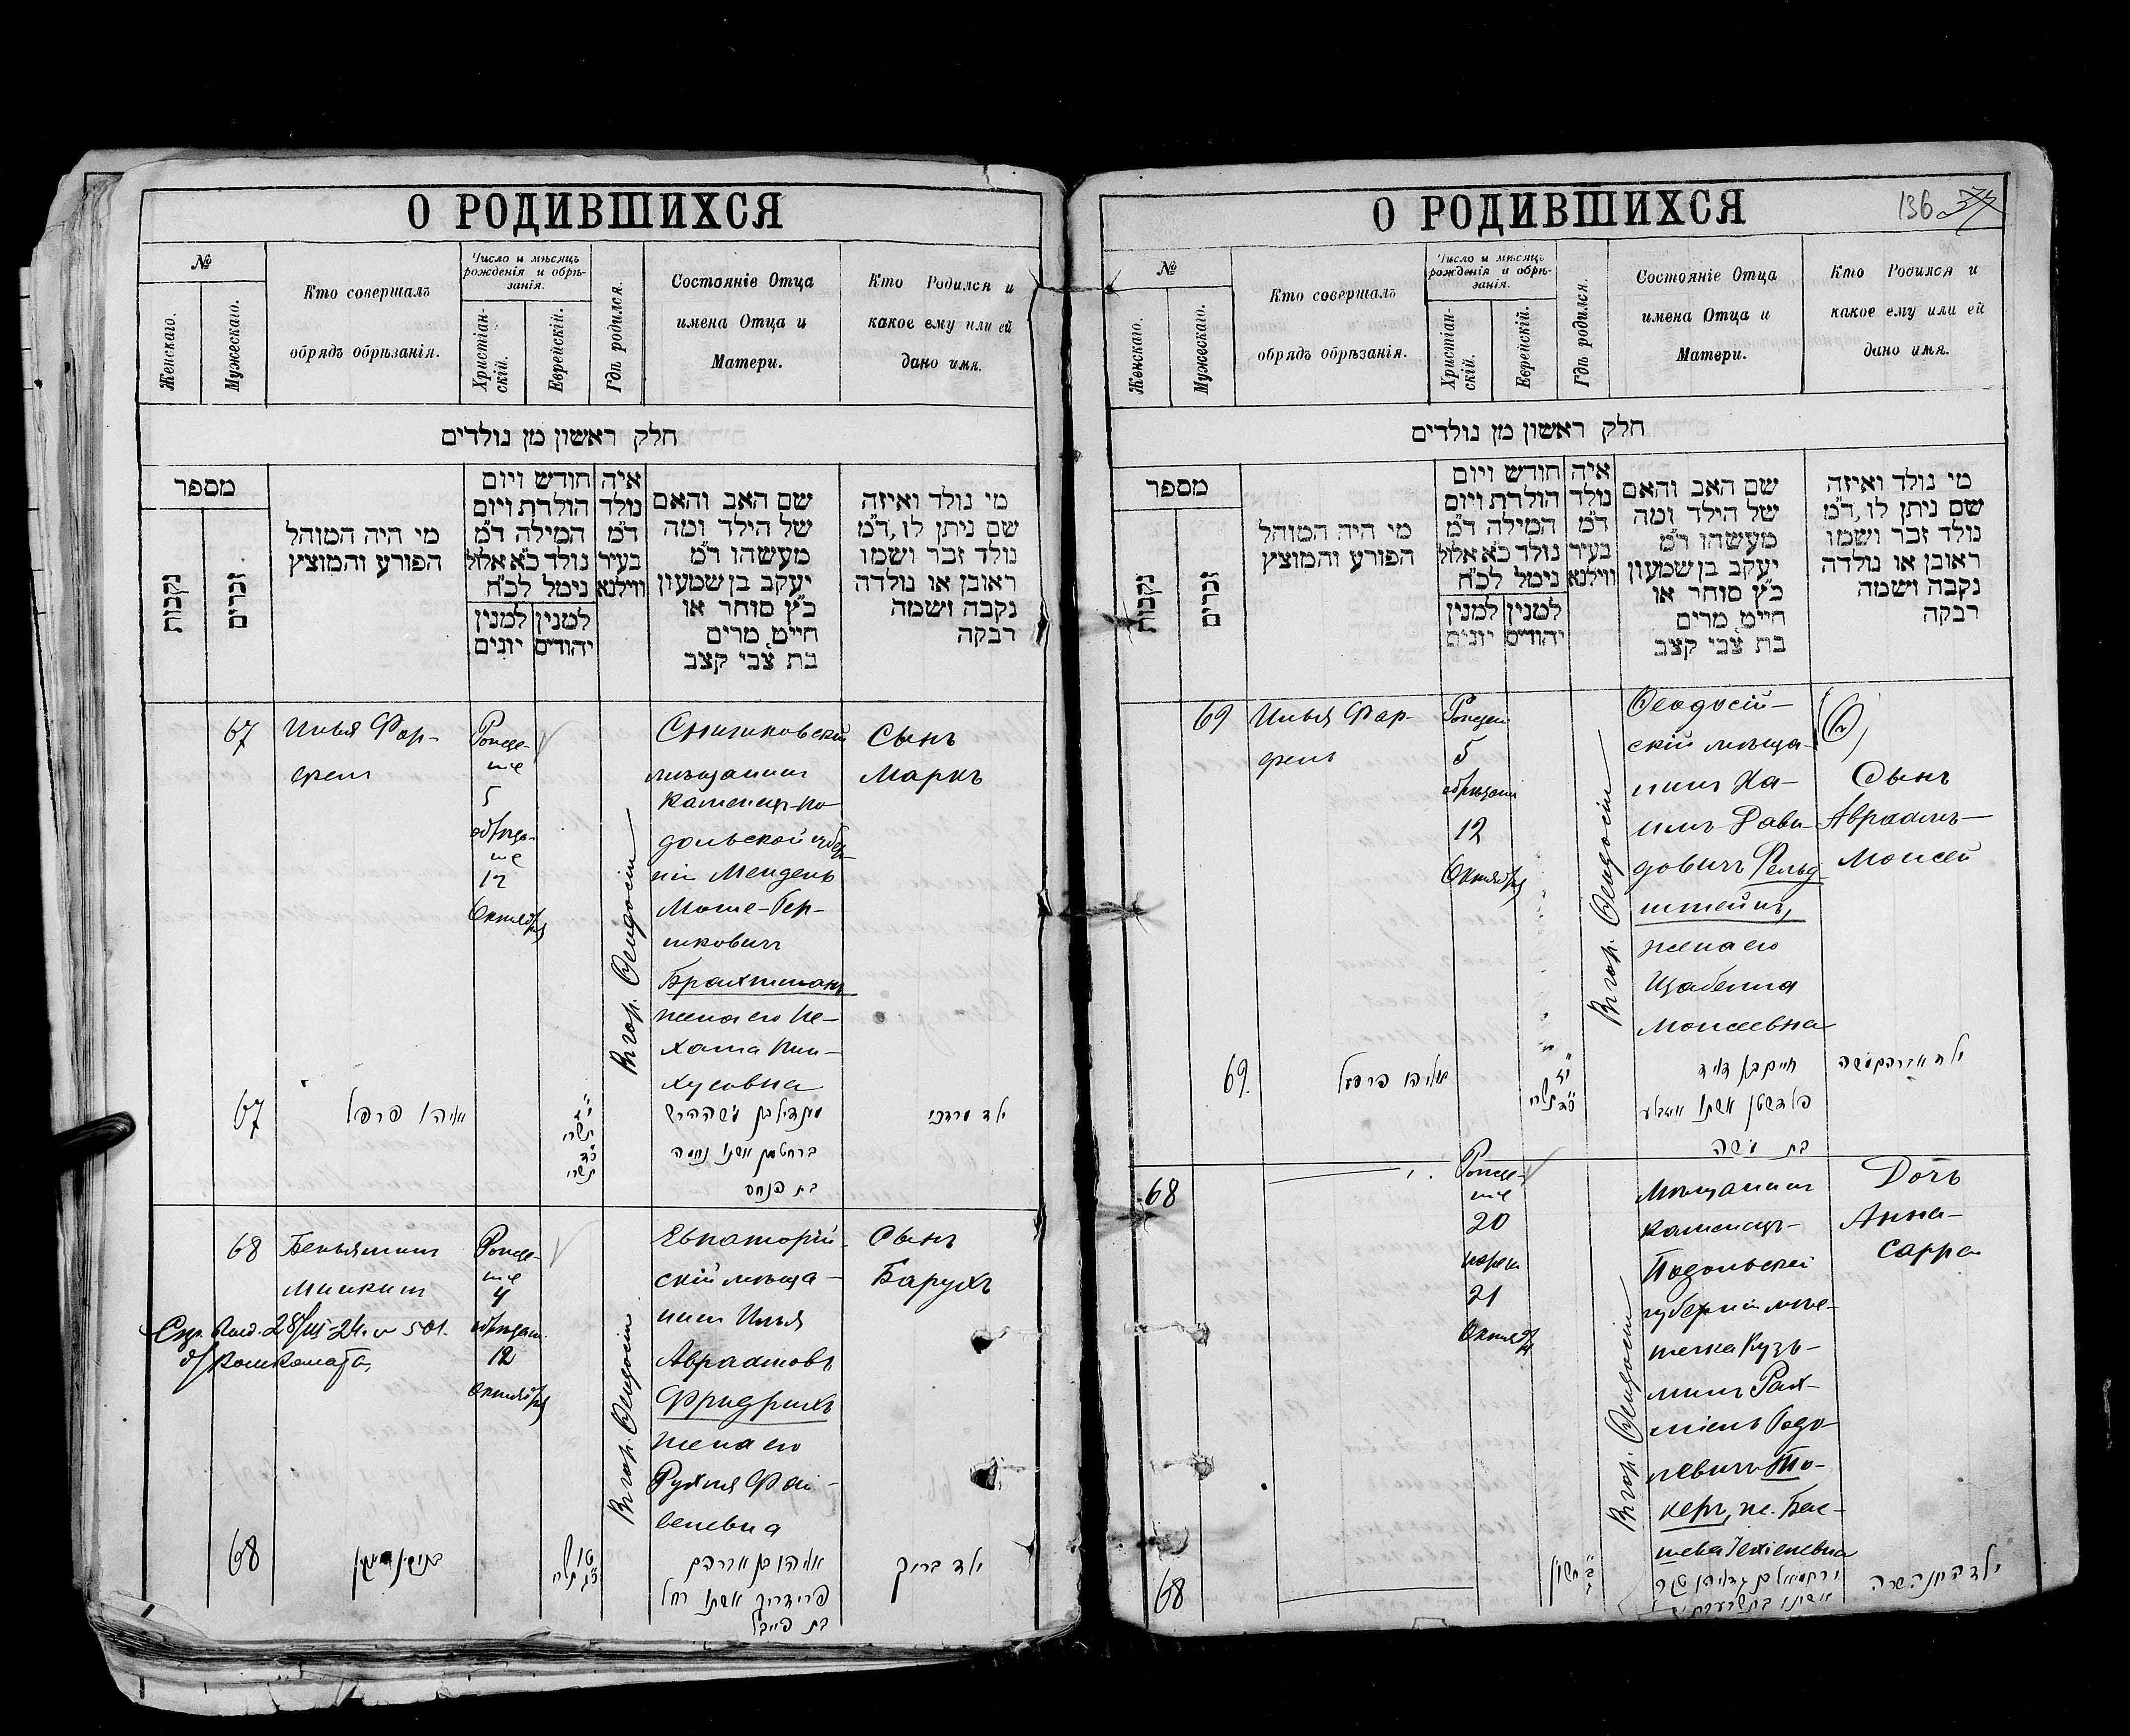 О РОДИВШИХСЯ
№
Женскаго.
Мужескаго.
Кто совершалъ
обрядъ обрѣзанія.
Число и мѣсяцъ
рожденія и обрѣ-
занія.
Христіан-
скій.
Еврейскій.
Гдѣ родился.
Состояніе Отца
имена Отца и
Матери.
Кто Родился и
какое ему или ей
дано имя.
חלק ראשון מן נולדים
מספר
נקבות
זכרים
מי היה המוהל
הפורע והמוצץ
חודש ויום
הולדת ויום
המילה ד״מ
נולד כ״א אלול
נימל לכ״ח
למנין למנין
יהודים יונים
איה
נולד
ד״מ
בעיר
ווילנא
שם האב והאם
של הילד ומה
מעשהו ד״מ
יעקב בן שמעון
כ״ץ סוחר או
חייט, מרים
בת צבי קצב
מי נולד ואיזה
שם ניתן לו, ד״מ
נולד זכר ושמו
ראובן או נולדה
נקבה ושמה
רבקה
67
Илья Фар-
фель
Рожде-
ніе
5
обрѣза-
ніе
12
Октября
В гор. Ѳеодосіи
мѣщанинъ
Каменец-По-
дольской губер-
ніи Мендель
Моше-Гер-
шковичъ
Брахтманъ
жена его Не-
хама Пин-
хусовна
Сынъ
Маркъ
67
אליהו פרפל
תשרי
תשרי
מענדיל בן משה הירש
ברחטמן אשתו נחמה
בת פנחס
ילד מרדכי
68
Беньяминъ
Минкинъ
Рожде-
ніе
4
обрѣзан.
12
Октября
В гор. Ѳеодосіи
Евпаторій-
скій мѣща-
нинъ Илья
Абрамовъ
Фридрихъ
жена его
Рухля Фай-
велевна
Сынъ
Барухъ
28/III-24. № 501.
68
אליהו בן אברהם
פרידריך אשתו רחל
בת פייבל
ילד ברוך
О РОДИВШИХСЯ
136
№
Женскаго.
Мужескаго.
Кто совершалъ
обрядъ обрѣзанія.
Число и мѣсяцъ
рожденія и обрѣ-
занія.
Христіан-
скій.
Еврейскій.
Гдѣ родился.
Состояніе Отца
имена Отца и
Матери.
Кто Родился и
какое ему или ей
дано имя.
חלק ראשון מן נולדים
מספר
נקבות
זכרים
מי היה המוהל
הפורע והמוצץ
חודש ויום
הולדת ויום
המילה ד״מ
נולד כ״א אלול
נימל לכ״ח
למנין למנין
יהודים יונים
איה
נולד
ד״מ
בעיר
ווילנא
שם האב והאם
של הילד ומה
מעשהו ד״מ
יעקב בן שמעון
כ״ץ סוחר או
חייט, מרים
בת צבי קצב
מי נולד ואיזה
שם ניתן לו, ד״מ
נולד זכר ושמו
ראובן או נולדה
נקבה ושמה
רבקה
69
Илья Фар-
фель
Рожден
5
обрѣзан
12
Октября
В гор. Ѳеодосіи
Ѳеодосій-
скій мѣща-
нинъ Ха-
имъ Дави-
довичъ Фельд-
штейнъ,
жена его
Моисеевна
Сынъ
Авраамъ-
Моисей
69
אליהו פרפל
חיים בן דוד
פלדשטן אשתו
בת משה
ילד אברהם משה
68
Рожде-
ніе
20
нареч
21
Октября
В гор. Ѳеодосіи
Мѣщанинъ
Каменецъ-
Подольской
губерніи мѣс-
течка Кузь-
минъ Рах-
міель Годо-
левичъ То-
керъ, ж. Бас-
шева Іехіелевна
Дочь
Анна-
Сарра
68
חשון
ירחמיאל בן גדליהו טקר
ילדה חנה שרה